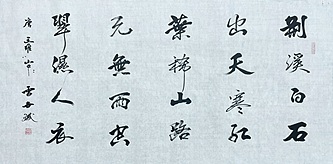 荆溪白石
出天寒红
葉稀山路
元無雨空
翠濕人衣
唐王維山中